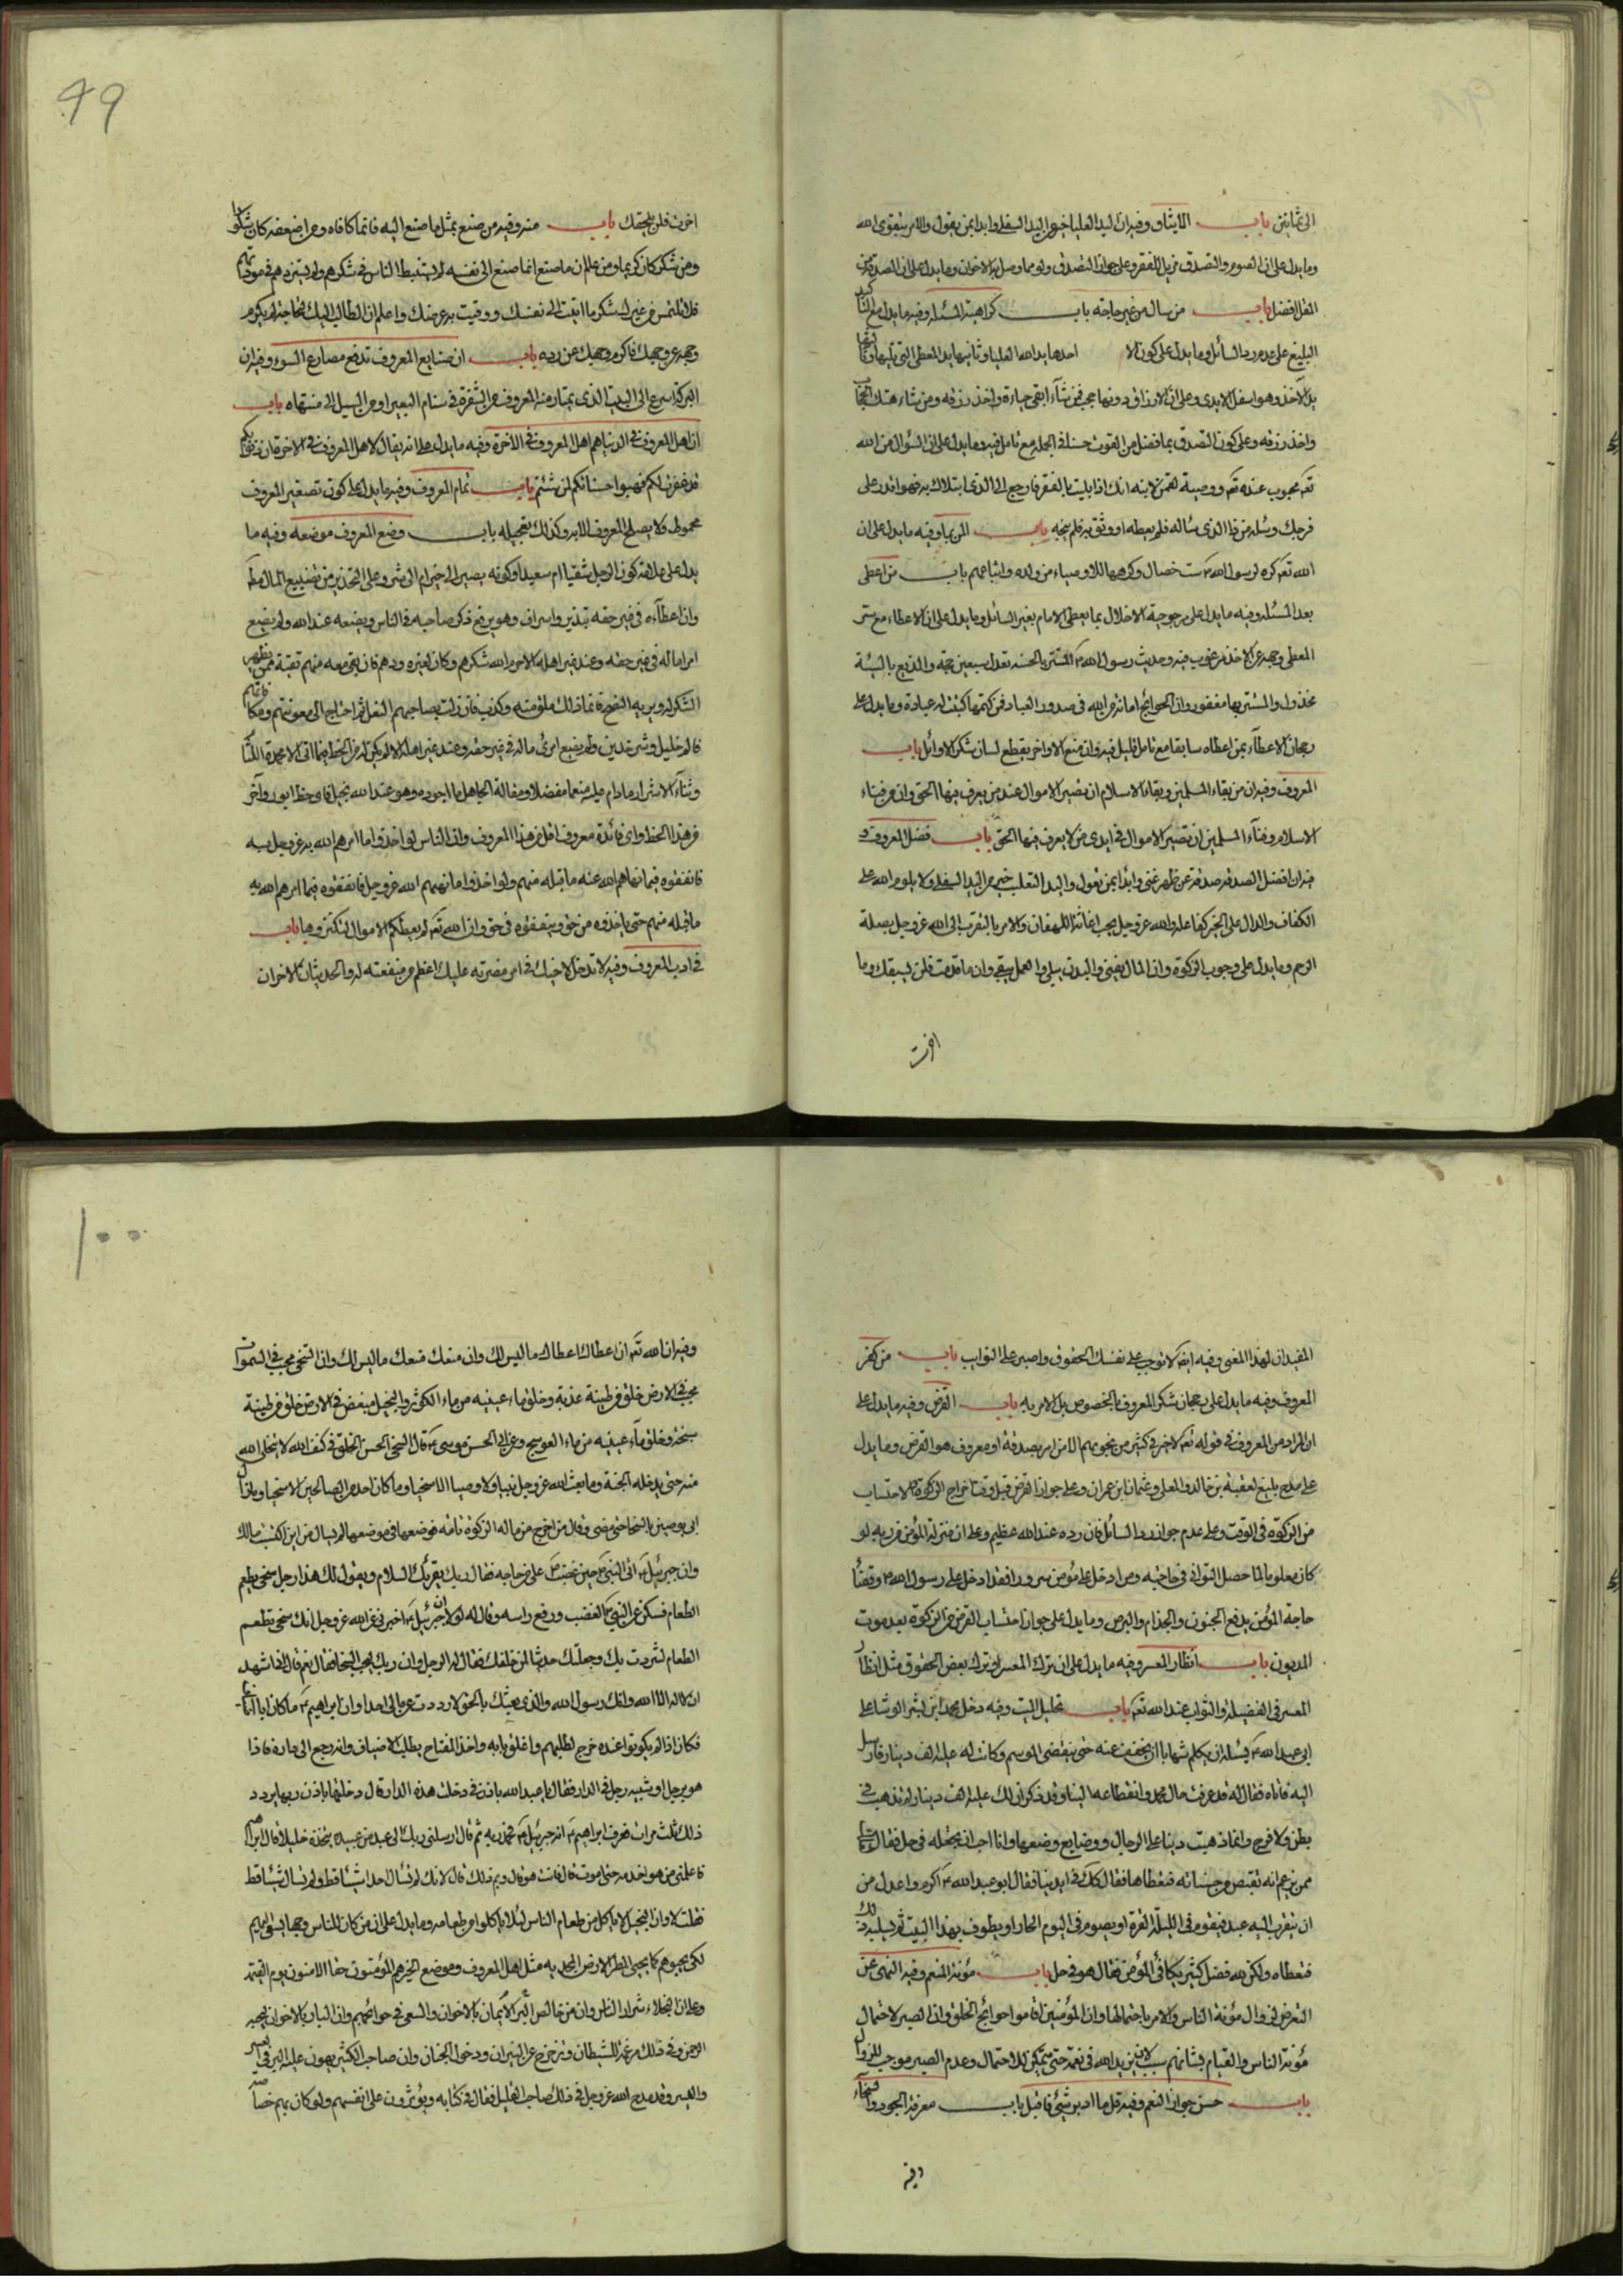 الى ثمانين باب الايثار وفيه ان اليد العليا خير من اليد السفلى وابدا بمن يعول والامر بتقوى الله
وما يدل على ان الصوم والتصدق مزيل للفقر وعلى جواز التصدق ولو مما وصل من الاخوان وما يدل على ان الصدقة من
المقل افضل باب من سال من غير حاجة باب كراهية المسئلة وفيه ما يدل مع
البليغ على عدم رد السائل وما يدل على كون الا احدها يد الله العليا وثانيها يد المعطى التي تليها وثالثها
يد الآخذ وهو اسفل الايدى وعلى ان الارزاق دونها حجب فمن شآء ابقى حياءه واخذ رزقه ومن شاء هتك الحجاب
واخذ رزقه وعلى كون التصدق بما فضل من القوت حسنا في الجملة مع تامل فيه وما يدل على ان السؤال من الله
تعه محبوب عنده تعه ووصية لقمن لابنه انك اذا بليت بالفقر فارجع الى الذى ابتلاك به فهو اقدر على
فرجك وسئله من ذا الذى ساله فلم يعطه او وثق به فلم ينجه باب المن وفيه ما يدل على ان
الله تعه كره لرسول الله ص ست خصال وكرهها للاوصياء من ولده واتباعهم باب من اعطى
بعد المسئلة وفيه ما يدل على مرجوحية الاخلال بما يعطى الامام بغير السائل وما يدل على ان الاعطاء مع ستر
المعطى وجهه عن الاخذ مرغوب فيه وحديث رسول الله ص المستتر بالحسنة تعدل سبعين حجة والمذيع بالسيئة
مخذول والمستتر بها مغفور وان الحوائج امانة من الله في صدور العباد فمن كتمها كتبت له عبادة وما يدل على
رجحان الاعطآء بمن اعطاه سابقا مع تامل قليل فيه وان منع الاواخر يقطع لسان شكر الاوائل باب
المعروف وفيه ان من بقاء المسلمين وبقاء الاسلام ان تصير الاموال عند من يعرف فيها الحق وان من فناء
الاسلام وفنآء المسلمين ان تصير الاموال في ايدى من لا يعرف فيها الحق باب فضل المعروف و
فيه ان افضل الصدقة صدقة عن ظهر غنى وابدأ بمن تعول واليد العليا خير من اليد السفلى ولا يلوم الله على
الكفاف والدال على الخير كفاعله والله عز وجل يحب اغاثة اللهفان والامر بالتقرب الى الله عز وجل بصلة
الرحم وما يدل على وجوب الزكوة وان المال يفنى والبدن يبلى والعمل يبقى وان ما قدمت فلن يسبقك وما
اخرت
49
اخرت فلن يلحقك باب منه وفيه من صنع بمثل ما صنع اليه فانما كافاه ومن اضعفه كان شكورا
ومن شكر كان كريما ومن علم ان ما صنع انما صنع الى نفسه لم يستبط الناس في شكرهم ولم يستزدهم في مودتهم
فلا تلتمس من غيرك شكر ما اتيت الى نفسك ووقيت به عرضك واعلم ان الطالب اليك الحاجة لم يكرم
وجهه عن وجهك فاكرم وجهك عن رده باب ان صنايع المعروف تدفع مصارع السوء وفيه ان
البركة اسرع الى البيت الذى يمتار منه المعروف من الشفرة في سنام البعير او من السيل الى منتهاه باب
ان اهل المعروف في الدنيا هم اهل المعروف في الآخرة وفيه ما يدل على انه يقال لاهل المعروف في الاخرة ان ذنوبكم
قد غفرت لكم فهبوا حسناتكم لمن شئتم باب تمام المعروف وفيه ما يدل على كون تصغير المعروف
ولا يصلح المعروف الا به وكذلك تعجيله باب وضع المعروف موضعه وفيه ما
يدل على علامة كون الرجل شقيا ام سعيدا وكونه يصير الى خير ام الى شر وعلى التحذير من تضييع المال
وان اعطآءه في غير حقه تبذير واسراف وهو يرفع ذكر صاحبه في الناس ويضعه عند الله ولم يضع
امرؤ ماله في غير حقه وعند غير اهله الا حرمه الله شكرهم وكان لغيره ودهم فان بقى معه منهم بقية ممن يظهر
الشكر له ويريه النصح فانما ذلك ملق منه وكذب فان زلت بصاحبهم النعل ثم احتاج الى معونتهم ومكافاتهم
فالام خليل وشر خدين ولم يضع امرئ ماله في غير حقه وعند غير اهله الا لم يكن له من الحظ فيما اتى الا محمدة اللئام
وثنآء الاشرار ما دام عليه منعما مفضلا ومقالة الجاهل ما اجوده وهو عند الله بخيل فاى حظ ابور وآخر
من هذا الحظ واى فائدة معروف اقل من هذا المعروف وان الناس لو اخذوا ما امرهم الله به عز وجل به
فانفقوه فيما نهاهم الله عنه ما قبله منهم ولو اخذوا ما نهيهم الله عز وجل فانفقوه فيما امرهم الله به
ما قبله منهم حتى ياخذوه من حق وينفقوه في حق وان الله تعه لم يعطكم الاموال لتكنزوها باب
في ادب المعروف وفيه لا تدخل لاخيك في امر مضرته عليك اعظم من منفعته له والحديثان الاخران
المفيدان لهذا المعنى وفيه ايضا لا توجب على نفسك الحقوق واصبر على النوائب باب من كفر
المعروف وفيه ما يدل على رجحان شكر المعروف بالخصوص بل الامر به باب القرض وفيه ما يدل على
ان المراد من المعروف في قوله تعه لا خير في كثير من نجويهم الا من امر بصدقة او معروف هو القرض وما يدل
على مدح بليغ لعقبة بن خالد والمعلى وعثمان بن عمران وعلى جواز القرض قبل وقت اخراج الزكوة والاحتساب
من الزكوة في الوقت وعلى عدم جواز رد السائل فان رده عند الله عظيم وعلى ان منزلة المؤمن من ربه لو
كان معلوما لنا حصل التوانى في حاجته ومن ادخل على مؤمن سرورا فقد ادخل على رسول الله ص وقضآء
حاجة المؤمن يدفع الجنون والجذام والبرص وما يدل على جواز احتساب القرض من الزكوة بعد موت
المديون باب انظار المعسر وفيه ما يدل على ان ترك المعسر او ترك بعض الحقوق مثل انظار
المعسر في الفضيلة والثواب عند الله تعه باب تحليل الميت وفيه دخل محمد بن بشر الوشا على
ابى عبد الله ع يسئله ان يكلم شهابا ان يخفف عنه حتى ينقضى الموسم وكانت له عليه الف دينار فارسل
اليه فاتاه فقال له قد عرفت حال محمد وانقطاعه الينا وقد ذكر ان لك عليه الف دينار لم تذهب في
بطن ولا فرج وانما ذهبت دينا على الرجال ووضايع وضعها وانا احب ان تجعله في حل فقال لعلك
ممن يزعم انه يقبض من حسناته فتعطاها فقال كذلك في ايدينا فقال ابو عبد الله ع الله اكرم واعدل من
ان يتقرب اليه عبد فيقوم في الليلة القرة او يصوم في اليوم الحار او يطوف بهذا البيت ثم يسلبه ذلك
فتعطاه ولكن لله فضل كثير يكافى المؤمن فقال هو في حل باب مؤنة النعم وفيه النهى عن
التعرض لزوال مؤنة الناس والامر باحتمالها وان المؤمنين اقاموا حوائج الخلق وان الصبر لاحتمال
مؤنة الناس والقيام بشانهم سبب لان يزيد الله في نعمه حتى يتمكن لك الاحتمال وعدم الصبر موجب للزوال
باب حسن جوار النعم وفيه قل ما ادبر شئ فاقبل باب معرفة الجود والسخآء
وفيه
100
وفيه ان الله تعه ان اعطاك اعطاك ما ليس لك وان منعك منعك ما ليس لك وان السخى محب في السموات
محب في الارض خلق من طينة عذبة وخلق ماء عينيه من ماء الكوثر والبخيل مبغض في الارض خلق من طينة
سبخة وخلق مآء عينيه من ماء العوسج وعن ابى الحسن موسى ع قال السخى الحسن الخلق في كنف الله لا يتخلى الله
منه حتى يدخله الجنة وما بعث الله عز وجل نبيا ولا وصيا الا سخيا وما كان احد من الصالحين الا سخيا وما زال
ابى يوصينى بالسخا حتى مضى وقال من اخرج من ماله الزكوة تامة فوضعها في موضعها لم يسال من اين اكتسبت مالك
وان جبرئيل ع اتى النبى ص حين غضب ص على من حاجه فقال ربك يقرئك السلام ويقول لك هذا رجل سخى يطعم
الطعام فسكن عن النبى ص الغضب ورفع راسه وقال له لولا ان جبرئيل ع اخبرنى عن الله عز وجل انك سخى تطعم
الطعام لشردت بك وجعلتك حديثا لمن خلفك فقال له الرجل وان ربك ليحب السخا فقال نعم قال انى اشهد
ان لا اله الا الله وانك رسول الله والذى بعثك بالحق لا رددت عن مالى احدا وان ابراهيم ع ما كان ابا اضياف
فكان اذا لم يكونوا عنده خرج لطلبهم واغلق بابه واخذ المفتاح يطلب الاضياف وانه رجع الى داره فاذا
هو برجل او شبه رجل في الدار فقال يا عبد الله باذن من دخلت هذه الدار قال دخلتها باذن ربها يردد
ذلك ثلث مرات فعرف ابراهيم ع انه جبرئيل ع فحمد ربه ثم قال ارسلنى ربك الى عبد من عبيده يتخذه خليلا قال ابراهيم
فاعلمنى من هو اخدمه حتى اموت قال فانت هو قال ومم ذلك قال لانك لم تسال احدا شيئا قط ولم تسال شيئا قط
فقلت لا وان البخيل لا ياكل من طعام الناس لئلا ياكلوا من طعامه وما يدل على ان من كان للناس وجها
لكى يحيوهم كما يحيى المطر الارض المجدبة مثل اهل المعروف وموضع الخير هم المؤمنون حقا الامنون يوم القيمة
وعلى ان البخلاء شرار الناس وان من خالص الايمان البر بالاخوان والسعى في حوائجهم وان البار بالاخوان ليحبه
الرحمن وفي ذلك مرغمة للشيطان وتزحزح عن النيران ودخول الجنان وان صاحب الكثير يهون عليه البر في العسر
واليسر وقد مدح الله عز وجل في ذلك صاحب القليل فقال في كتابه ويؤثرون على انفسهم ولو كان بهم خصاصة